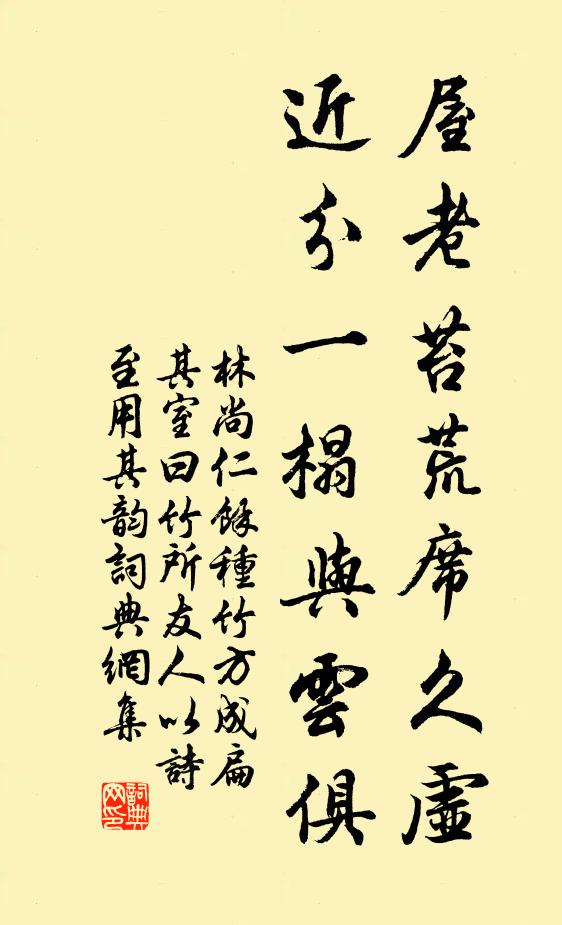 屋老苔荒席久虛
近分一榻與雲俱
林尚仁餘種竹方成扁
其室曰竹所友人以詩
至用其韵詞典網集
詞典網印